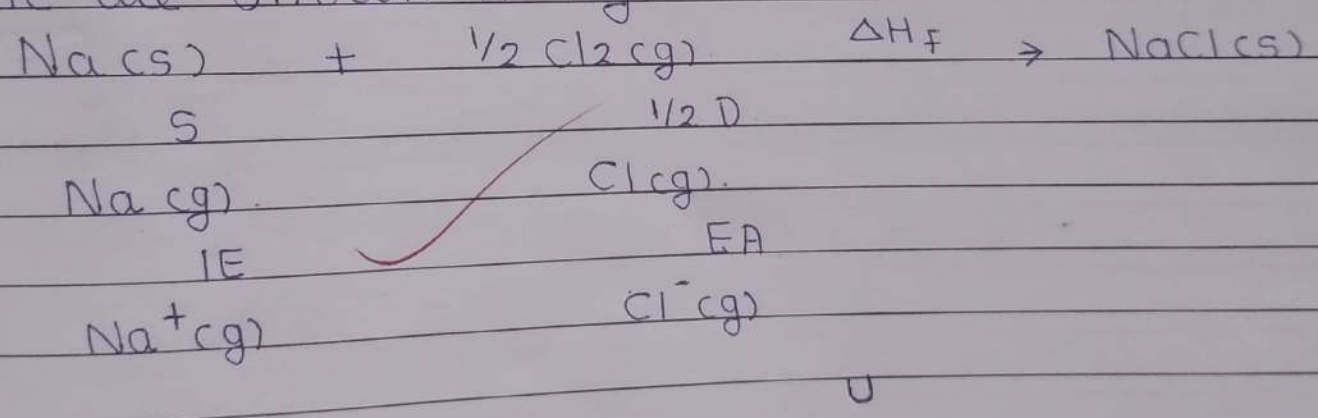 Na (s) + 1/2 Cl2 (g) ΔHf → NaCl (s)
S 1/2 D
Na (g). Cl (g).
IE EA
Na⁺ (g) Cl⁻ (g)